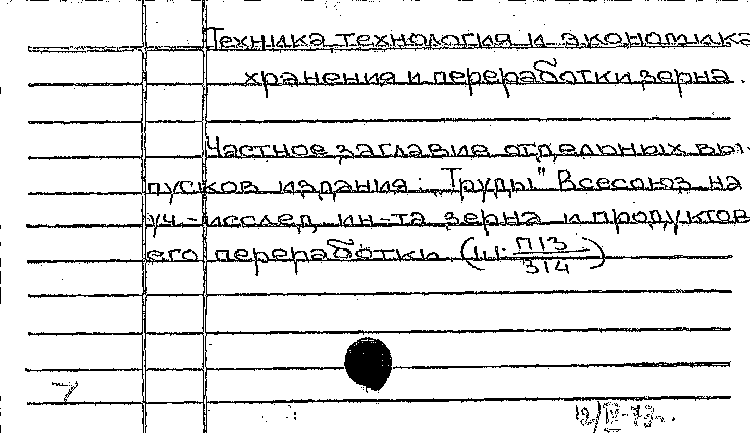 Техника, технология и экономика
хранения и переработки зерна.
Частное заглавие отдельных вы-
пусков издания: "Труды" Всесоюз. на
уч.-исслед. ин-та зерна и продуктов
его переработки. (Ш: П13/314)
7
12/IV-73г.